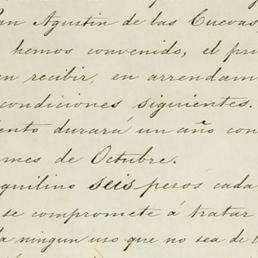 San Agustin de las Cuevas,
hemos convenido, el pri
en recibir, en arrendam
condiciones siguientes.
ento durará un año con
mes de Octubre.
quilino seis pesos cada
se compromete á tratar
ningun uso que no sea de